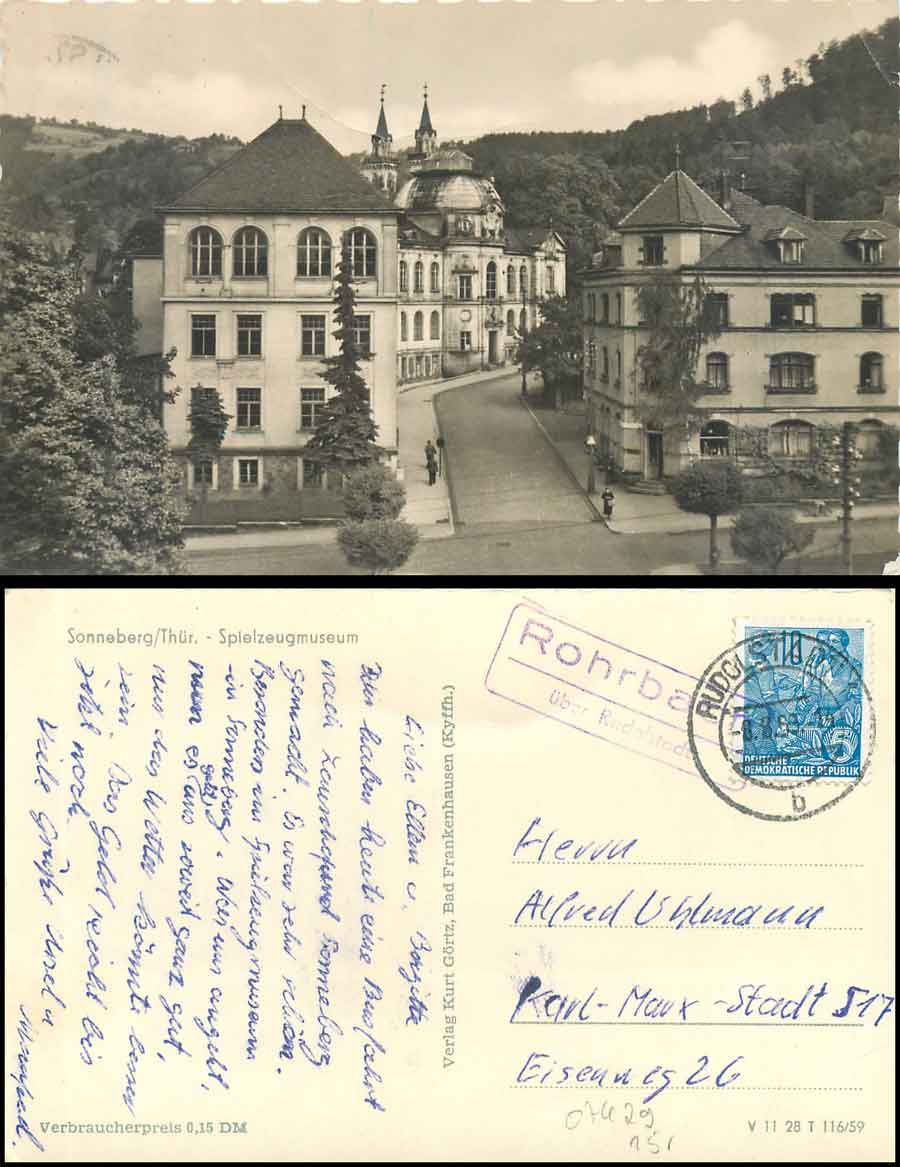 Sonneberg/Thür. - Spielzeugmuseum
Liebe Eltern u. Brigitte
Wir haben heute eine Busfahrt
nach Lauscha und Sonneberg
gemacht. Es war sehr schön.
Besonders im Spielzeugmuseum
in Sonneberg. Was uns angeht,
geht es uns soweit ganz gut,
nur das Wetter könnte besser
sein. Das Geld reicht bis
jetzt noch.
Viele Grüße
Verlag Kurt Görtz, Bad Frankenhausen (Kyffh.)
Verbraucherpreis 0,15 DM
Rohrba
über Rudolstadt
RUDOLSTADT
8.8.59
b
10
DEUTSCHE
DEMOKRATISCHE REPUBLIK
Herrn
Alfred Uhlmann
Karl-Marx-Stadt S17
Eisenweg 26
07429
V 11 28 T 116/59